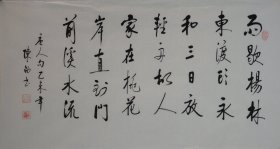 雨歇楊林
東渡頭永
和三日放
輕舟故人
家在桃花
岸直到門
前溪水流
唐人句乙未年
陳
書